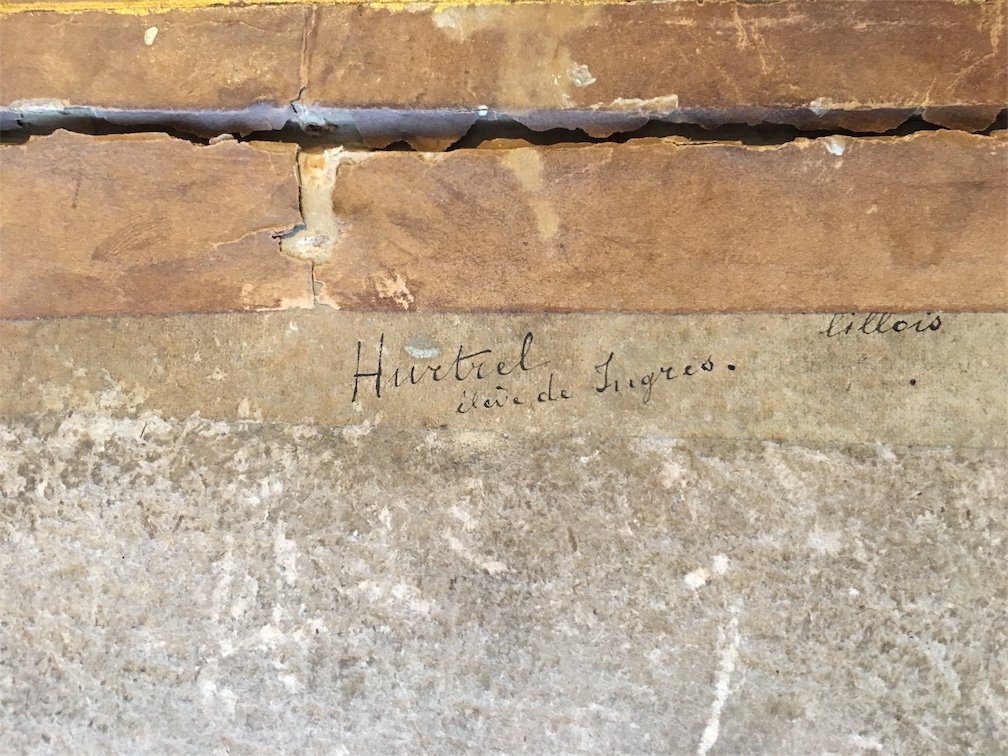 lillois
Hurtrel
élève de Ingres.